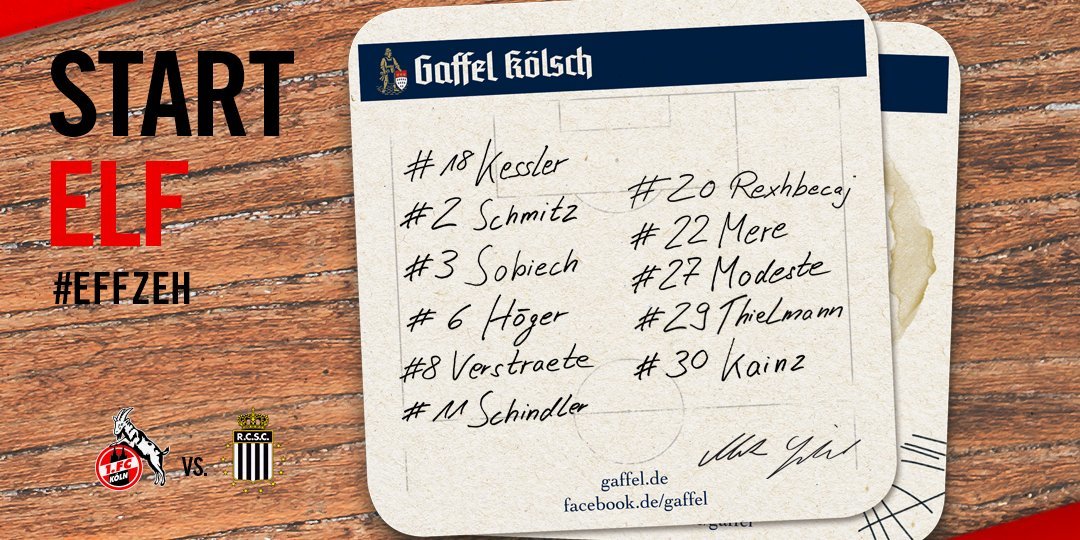 START
ELF
#EFFZEH
1.FC
KÖLN
VS.
R.C.S.C.
Gaffel Kölsch
#18 Kessler
#2 Schmitz
#3 Sobiech
#6 Höger
#8 Verstraete
#11 Schindler
#20 Rexhbecaj
#22 Mere
#27 Modeste
#29 Thielmann
#30 Kainz
gaffel.de
facebook.de/gaffel